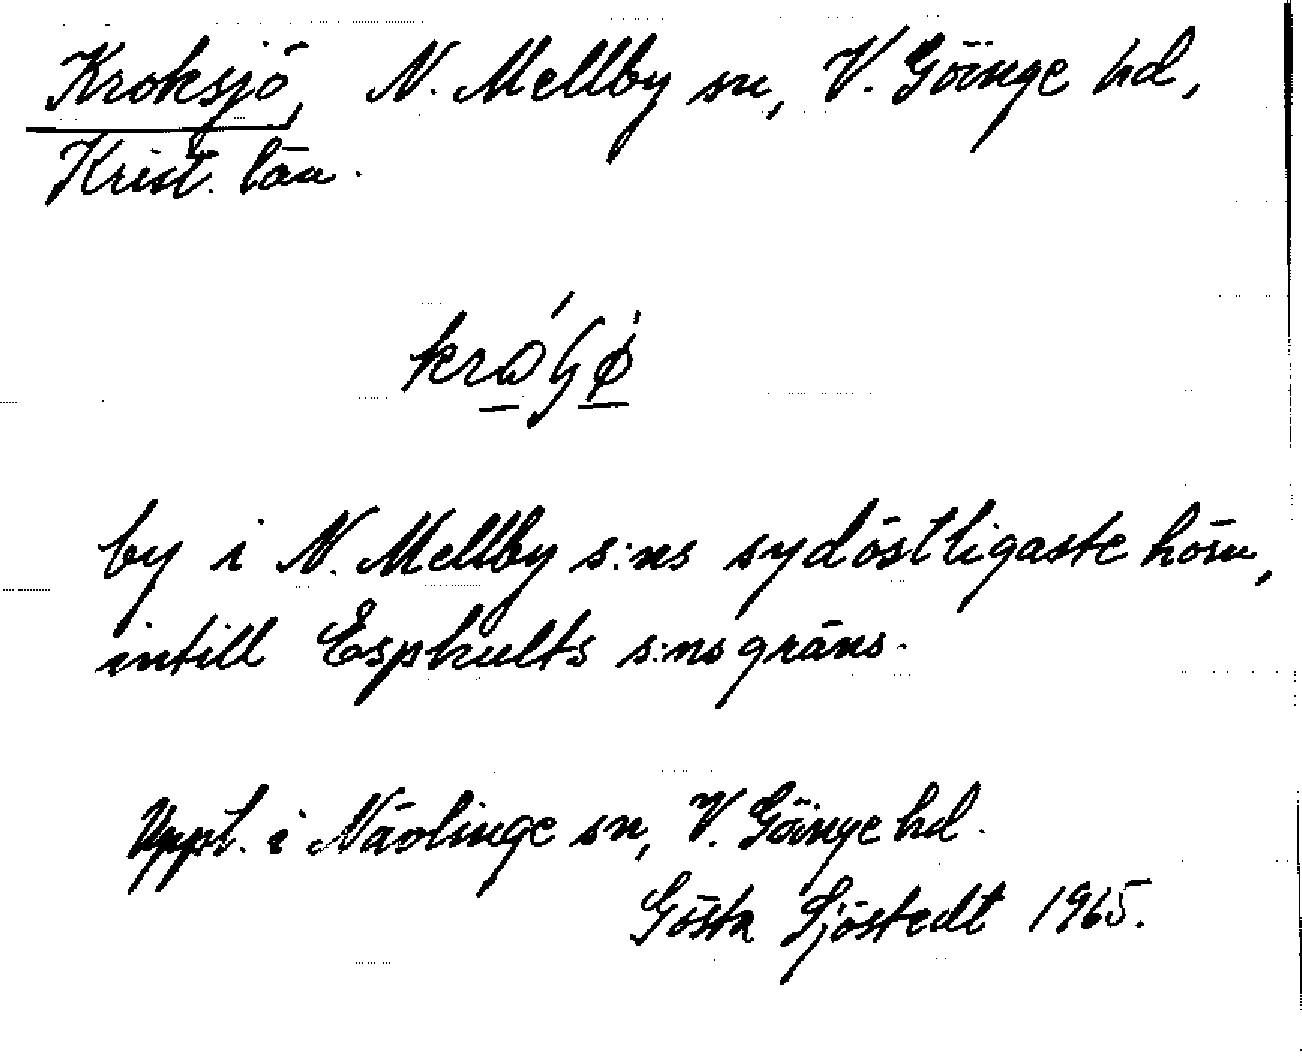 Kroksjö, N. Mellby sn, V. Göinge hd,
Krist. län.
by i N. Mellby s:ns sydöstligaste hörn,
intill Espkults s:ns gräns.
Uppt. i Nävlinge sn, V. Göinge hd.
Gösta Sjöstedt 1965.